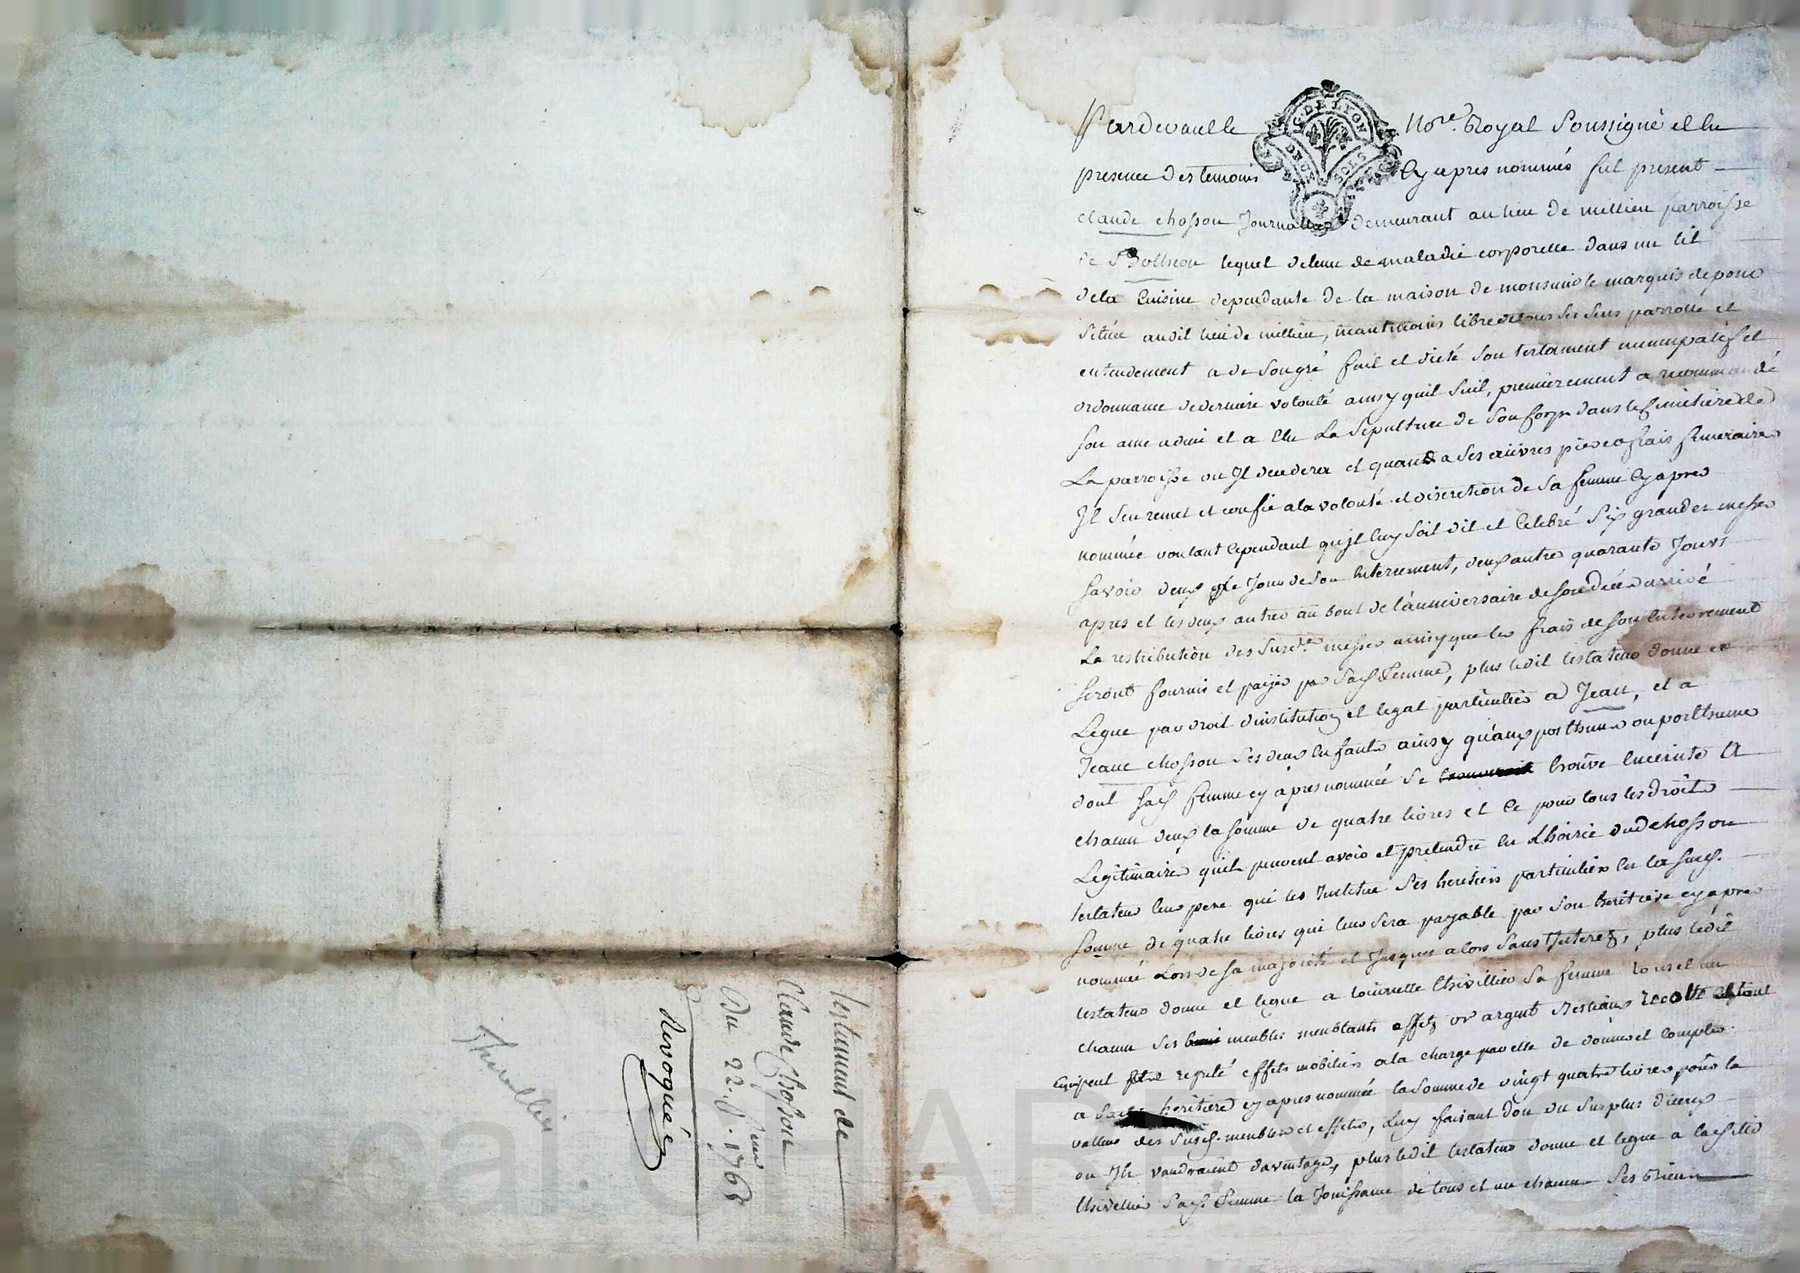 Pardevant le Nore. Royal Soussigné et En
presence des temoins Cy apres nommés fut present
claude chosson Journallier demeurant au lieu de millieu parroisse
de lequel detenu de maladie corporelle dans un lit
dela Cuisine dependante de la maison de monsieur le marquis de pons
Situee audit lieu de millieu, neantmoins libre de tous ses sens parrolle et
entendement a de Son gré fait et dicté Son testament nuncupatif et
ordonnance de derniere volonté ainsy quil Suit, premierement a recommandé
Son ame a dieu et a Elu La Sepulture de Son Corps dans le Cimetiere de
La parroisse ou Jl decedera et quand a Ses œuvres pies et frais funeraires
Jl Sen remet et confie a la volonté et discretion de Sa femme Cy apres
nommée voulant Cependant qujl luy Soit dit et Celebré Six grandes messes
Savoir deux le Jour de Son Enterrement, deux autres quarante Jours
apres et les deux autres au bout de l'anniversaire de Son deces arrivé
La restribution des Susdtes messes ainsy que les frais de Son Enterrement
Seront fournis et payés par Sad Femme, plus ledit testateur donne et
Legue par droit d'institution et legat particulier a Jean, et a
Jeane chosson Ses deux Enfants ainsy qu'aux posthume ou posthume
dont Sad femme cy apres nommée Se trouve Enceinte A
chacun deux la Somme de quatre livres et Ce pour tous les droits
Legitimaires quils peuvent avoir et pretendre En L'hoirie dud chosson
testateur leur pere qui les Jnstitue Ses heritiers particuliers En la Susd.
Somme de quatre livres qui leur Sera payable par Son heritiere cy apres
nommée Lors de Sa majorité et Jusques alors Sans Jnterez, plus ledit
testateur donne et legue a Thivillier Sa femme tous et un
chacun Ses meubles meublants effets or argent Bestiaux Recolte et tout
reputé effets mobiliers a la charge par elle de donner et compter
a heritiere cy apres nommée la Somme de vingt quatre livres pour la
valleur des Susd. meubles et effets, Luy faisant don du Surplus d'iceux
ou Jls vaudroient davantage, plus ledit testateur donne et legue a lad
Thivellier Sad. Femme la Jouissance de tous et un chacun Ses Biens
Testament de
Claude chosson
Du 22. 1768
Revoquée
Thivellier
Pascal CHAREYRON